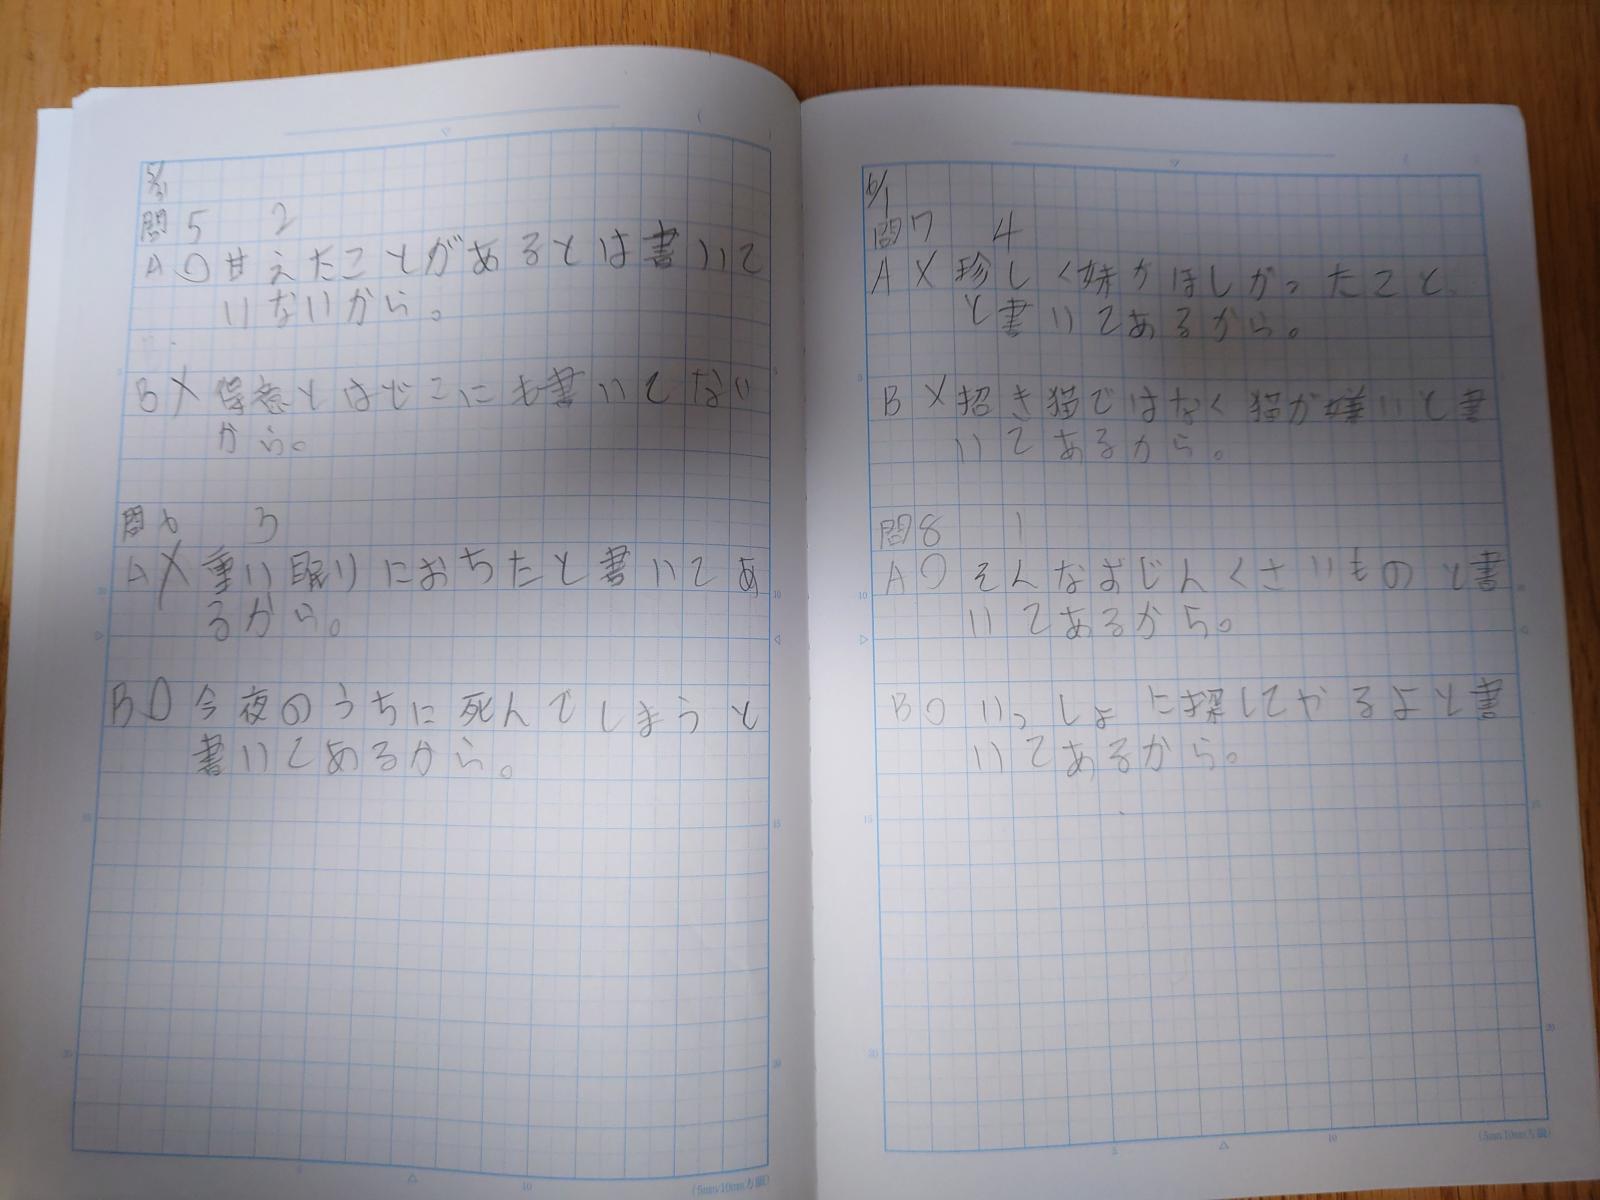 5/31
問5 2
A ○ 甘えたことがあるとは書いて
いないから。
B × 得意とはどこにも書いてない
から。
問6 3
A × 重い眠りにおちたと書いてあ
るから。
B ○ 今夜のうちに死んでしまうと
書いてあるから。
(5mm/10mm方眼)
6/1
問7 4
A × 珍しく妹がほしかったこと
と書いてあるから。
B × 招き猫ではなく猫が嫌いと書
いてあるから。
問8 1
A ○ そんなおじんくさいものと書
いてあるから。
B ○ いっしょに探してやるよと書
いてあるから。
(5mm/10mm方眼)